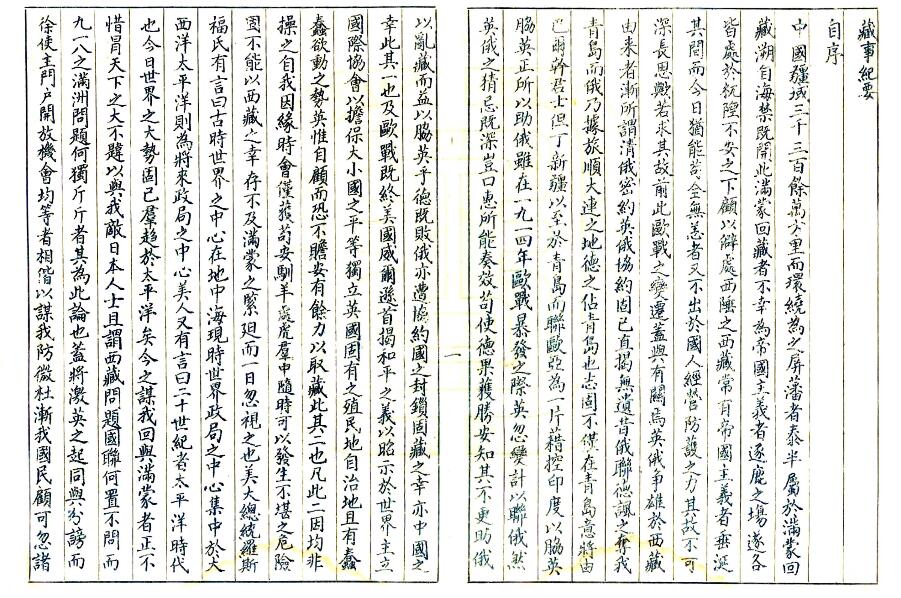 藏事紀要
自序
中國疆域三千三百餘萬方里而環繞為之屏藩者泰半屬於滿蒙回
藏溯自海禁既開此滿蒙回藏者不幸為帝國主義者逐鹿之場遂各
皆處於杌隉不安之下顧以僻處西陲之西藏常有帝國主義者垂涎
其間而今日猶能苟全無恙者又不出於國人經營防護之力其故不可
深長思歟若求其故前此歐戰之變遷蓋與有關焉英俄爭雄於西藏
由來者漸所謂清俄密約英俄協約固已直揭無遺昔俄聯德諷之奪我
青島而俄乃據旅順大連之地德之佔青島也志固不僅在青島意將由
巴爾幹君士但丁新疆以至於青島而聯歐亞為一片藉控印度以脇英
脇英正所以助俄雖在一九一四年歐戰暴發之際英忽變計以聯俄然
英俄之猜忌既深豈口惠所能奏效苟使德果獲勝安知其不更助俄
以亂藏而益以脇英乎德既敗俄亦遭協約國之封鎖固藏之幸亦中國之
幸此其一也及歐戰既終美國威爾遜首揭和平之義以昭示於世界主立
國際協會以擔保大小國之平等獨立英國固有之殖民地自治地且有蠢
蠢欲動之勢英惟自顧而恐不贍安有餘力以取藏此其二也凡此二因均非
操之自我因緣時會僅獲苟安馴羊處虎羣中隨時可以發生不堪之危險
固不能以西藏之幸存不及滿蒙之緊廹而一日忽視之也美大總統羅斯
福氏有言曰古時世界之中心在地中海現時世界政局之中心集中於大
西洋太平洋則為將來政局之中心美人又有言曰二十世紀者太平洋時代
也今日世界之大勢固已羣趨於太平洋矣今之謀我回與滿蒙者正不
惜冒天下之大不韙以與我敵日本人士且謂西藏問題國聯何置不問而
九一八之滿洲問題何獨斤斤者其為此論也蓋將激英之起同與分謗而
徐使主門戶開放機會均等者相偕以謀我防微杜漸我國民顧可忽諸
一